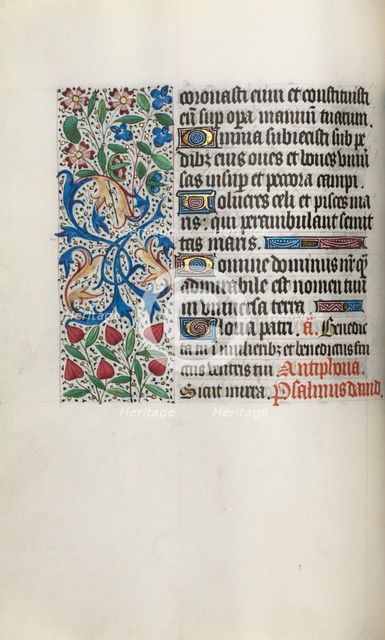 coronasti eum et constituisti
eū sup opa manuū tuarum.
Omnia subiecisti sub pe
dibꝫ eius oues et boues vniu
sas insup et pecora campi.
Volucres celi et pisces ma
ris: qui perambulant semit
tas maris.
Domine dominus nr̄ q̄
admirabile est nomen tuū
in vniuersa terra.
Gloria patri. a. Benedic
ta tu in mulieribꝫ et benedictus fru
ctus ventris tui. Antiphona.
Sicut mirra. Psalmus dauid.
Heritage
Heritage
Heritage
Heritage